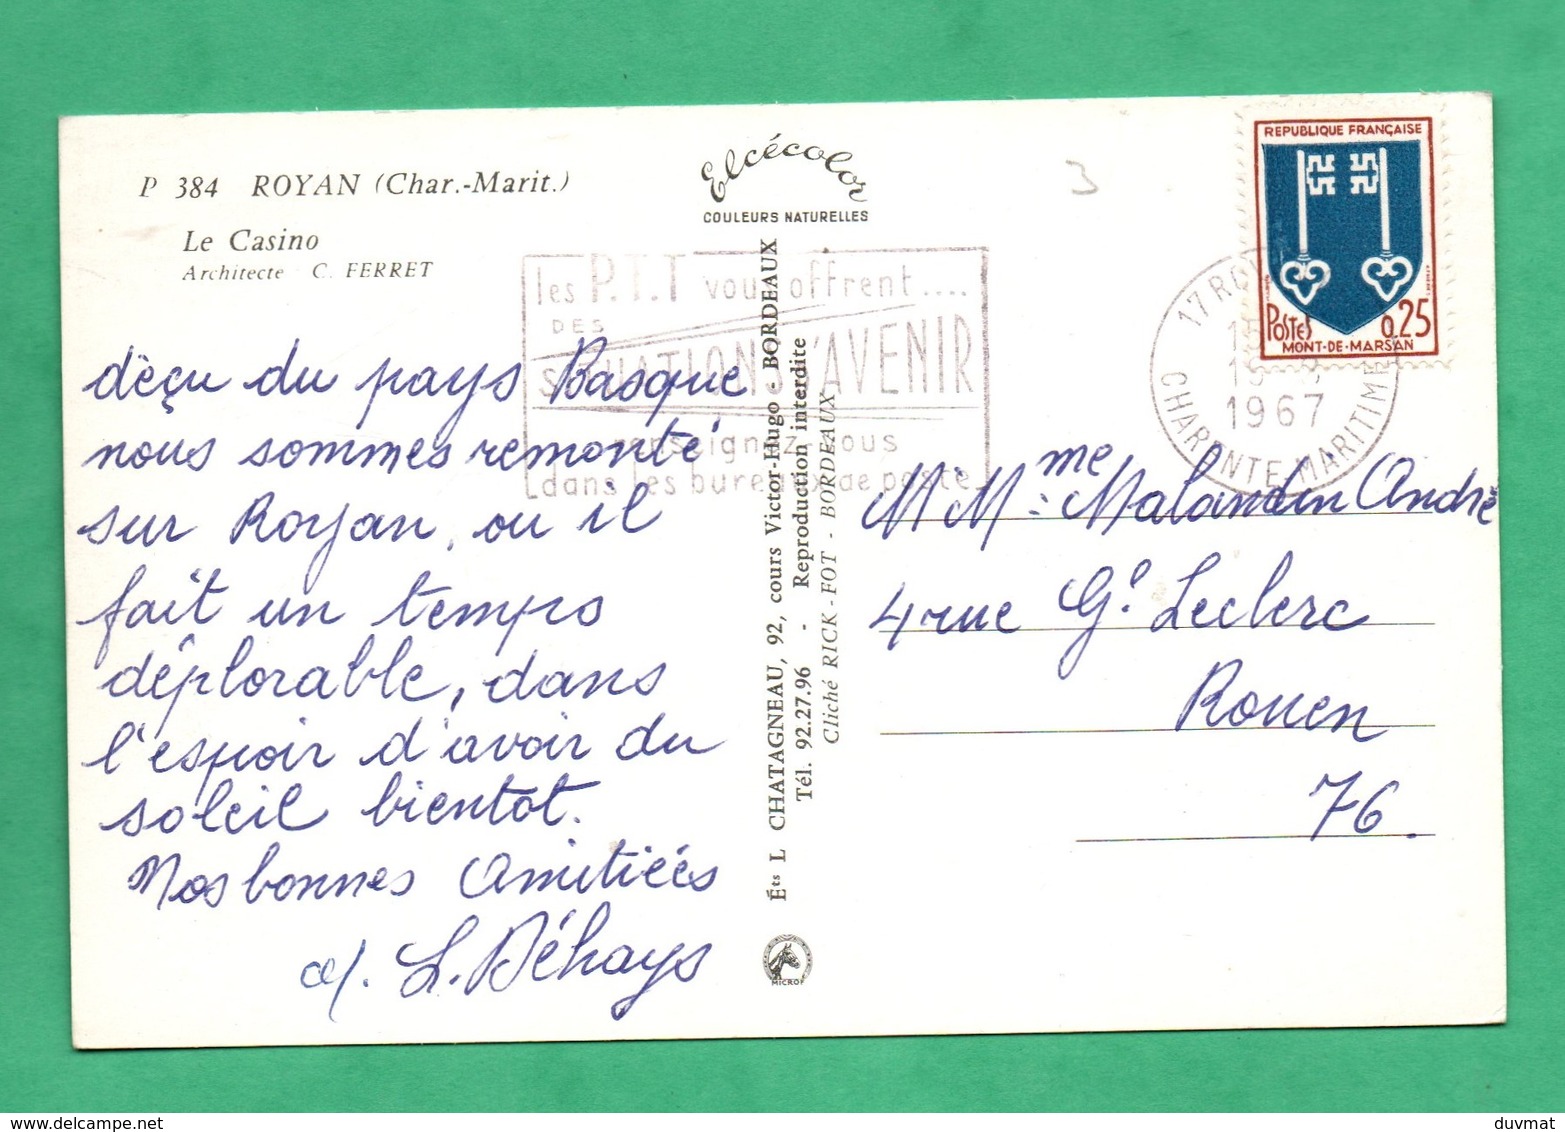 P 384 ROYAN (Char.-Marit.)
Le Casino
Architecte C. FERRET
Elcécolor
COULEURS NATURELLES
3
REPUBLIQUE FRANÇAISE
POSTES 0,25
MONT-DE-MARSAN
les P.T.T vous offrent....
DES
SITUATIONS D'AVENIR
renseignez-vous
dans les bureaux de poste
17 ROYAN
1967
CHARENTE MARITIME
dèçu du pays Basque
nous sommes remonté
sur Royan, ou il
fait un temps
déplorable, dans
l'espoir d'avoir du
soleil bientot.
Nos bonnes Amitiées
L. Déhays
Éts L CHATAGNEAU, 92, cours Victor-Hugo - BORDEAUX
Tél. 92.27.96 - Reproduction interdite
Cliché RICK-FOT - BORDEAUX
MICROF
M Mme Malandin André
4 rue Gl Leclerc
Rouen
76.
duvmat